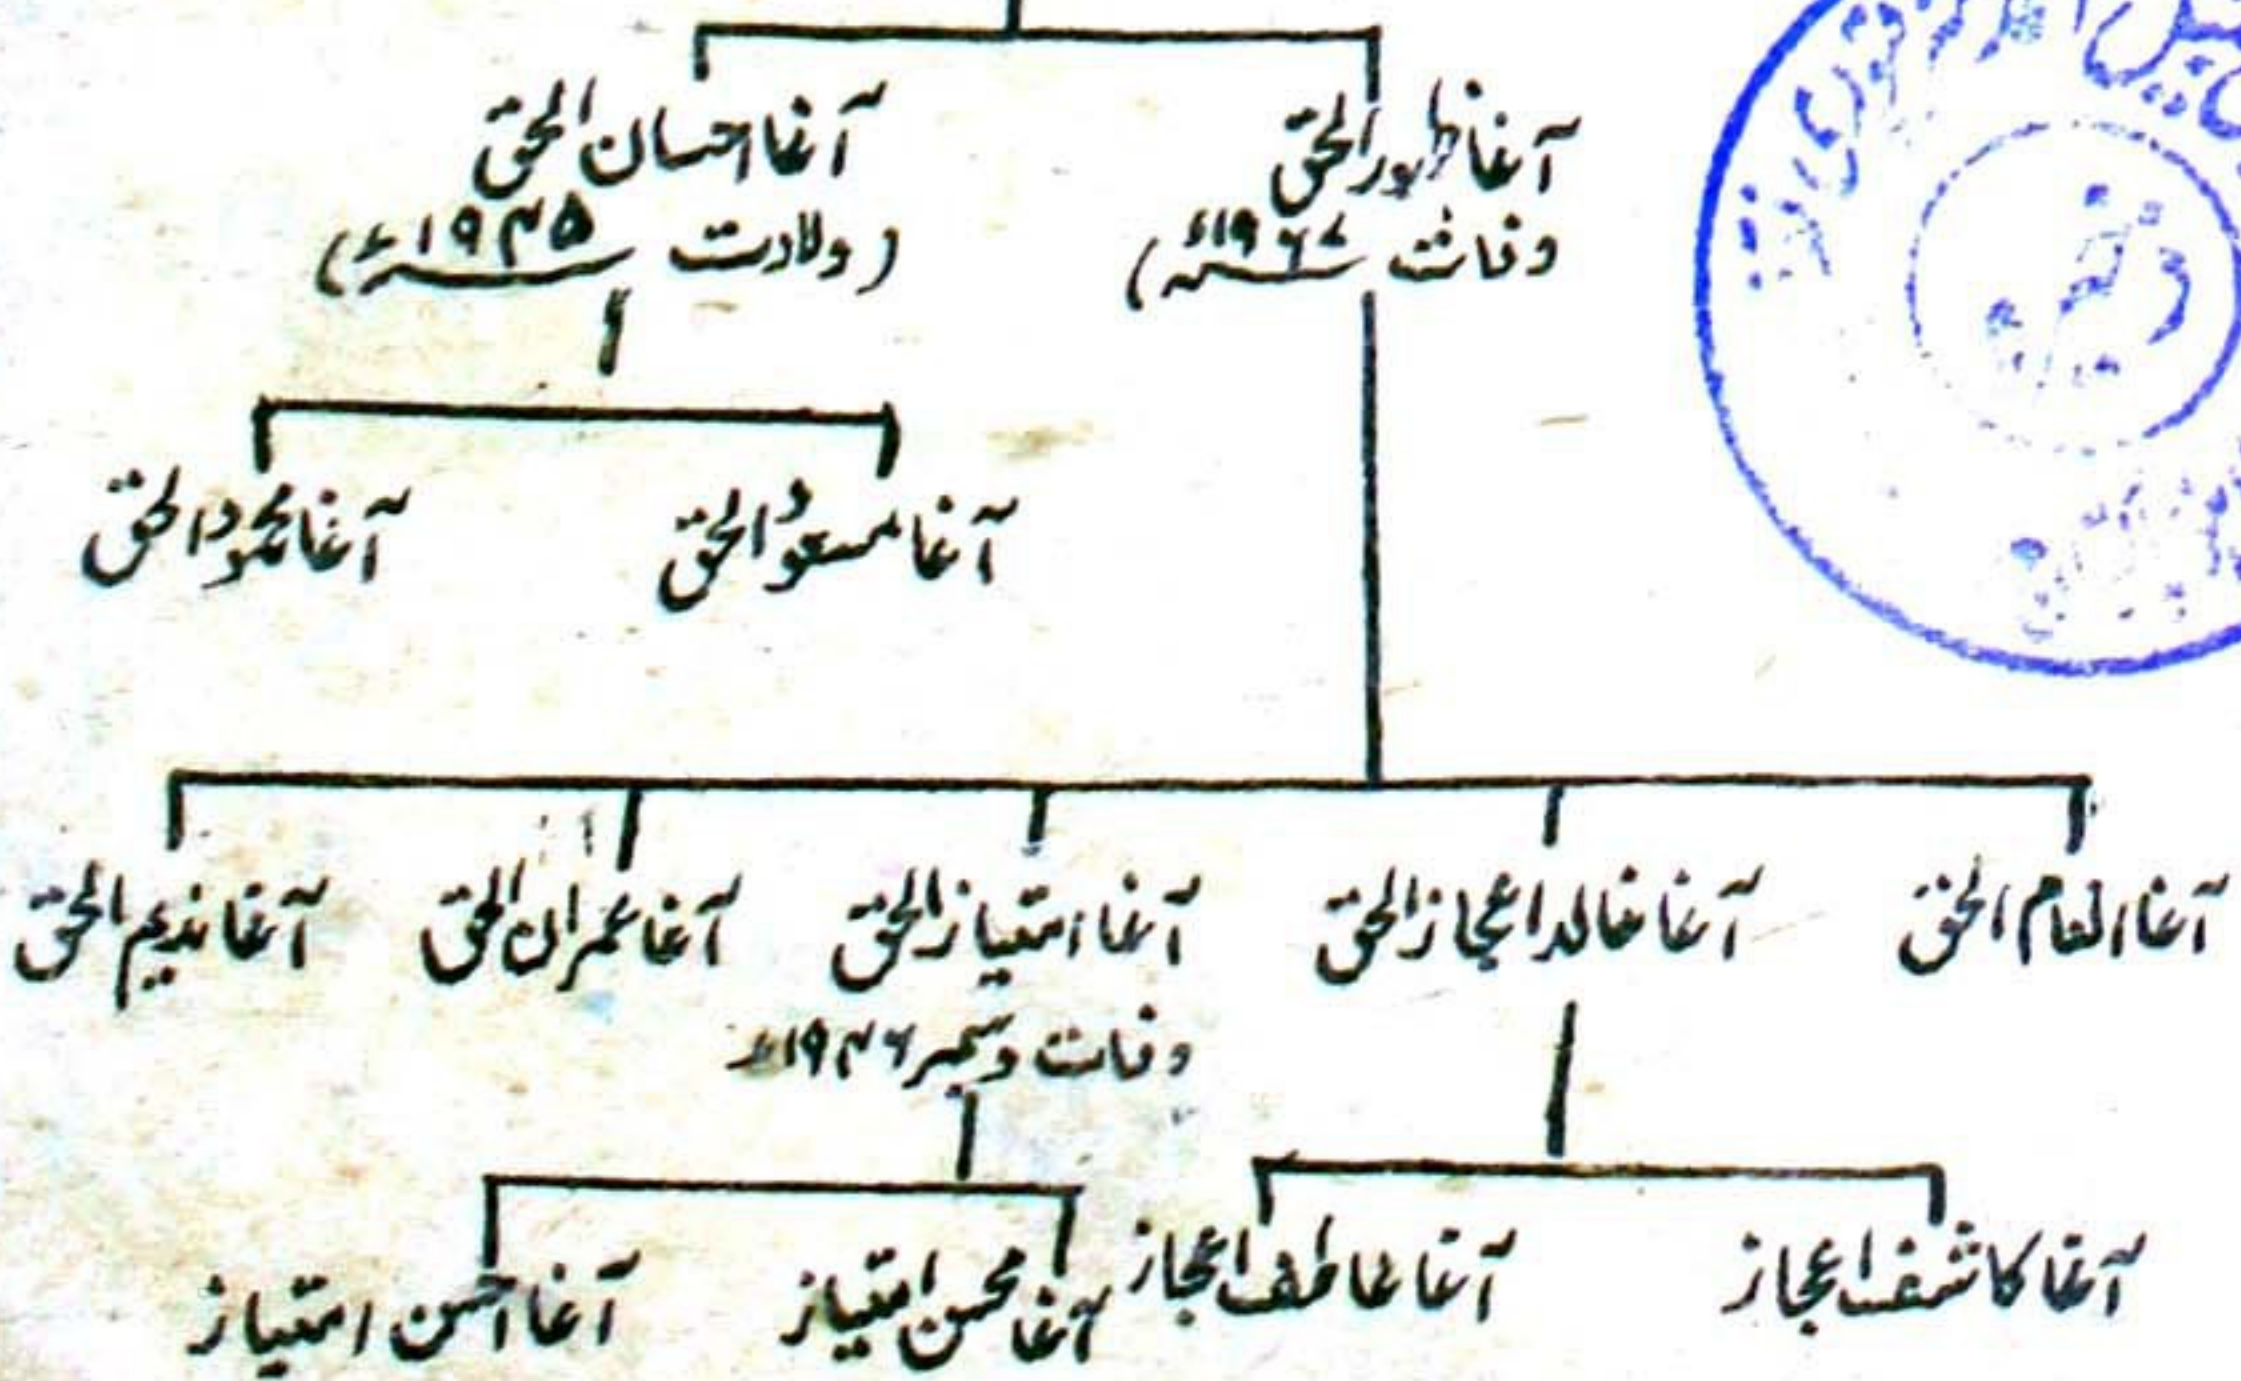 آغا ظہور الحق
وفات ۱۹۶۷ء)
آغا احسان الحق
(ولادت ۱۹۴۵ء)
آغا مسعود الحق
آغا محمود الحق
آغا انعام الحق
آغا خالد اعجاز الحق
آغا امتیاز الحق
وفات دسمبر ۱۹۴۶ء
آغا عمران الحق
آغا ندیم الحق
آغا کاشف اعجاز
آغا عاطف اعجاز
آغا محسن امتیاز
آغا احسن امتیاز